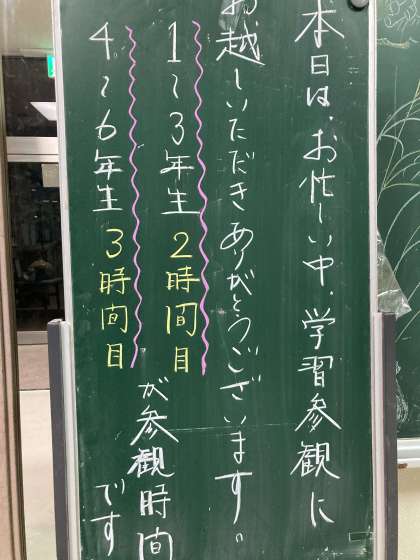 本日は、お忙しい中、学習参観に
お越しいただきありがとうございます。
1~3年生 2時間目
4~6年生 3時間目
が参観時間
です